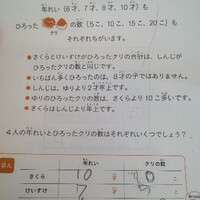 年れい(6才、7才、8才、10才)も
ひろった の数(5こ、10こ、15こ、20こ)も
クリ
それぞれちがいます。
●さくらとけいすけがひろったクリの合計は、しんじが
ひろった数と同じです。
●いちばん多くひろったのは、8才の子ではありません。
●しんじは、ゆりより2才年上です。
●ゆりのひろったクリの数は、さくらより10こ多いです。
●さくらは、しんじより2才年上です。
4人の年れいとひろったクリの数はそれぞれいくつでしょう?
年れい クリの数
さくら 10 才
けいすけ 7